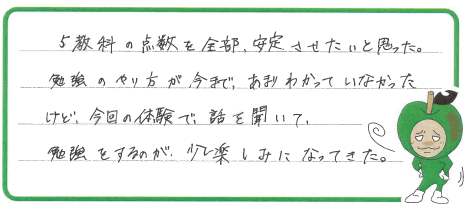 5教科の点数を全部、安定させたいと思った。
勉強のやり方が今まで、あまりわかっていなかった
けど、今回の体験で、話を聞いて、
勉強をするのが、少し楽しみになってきた。